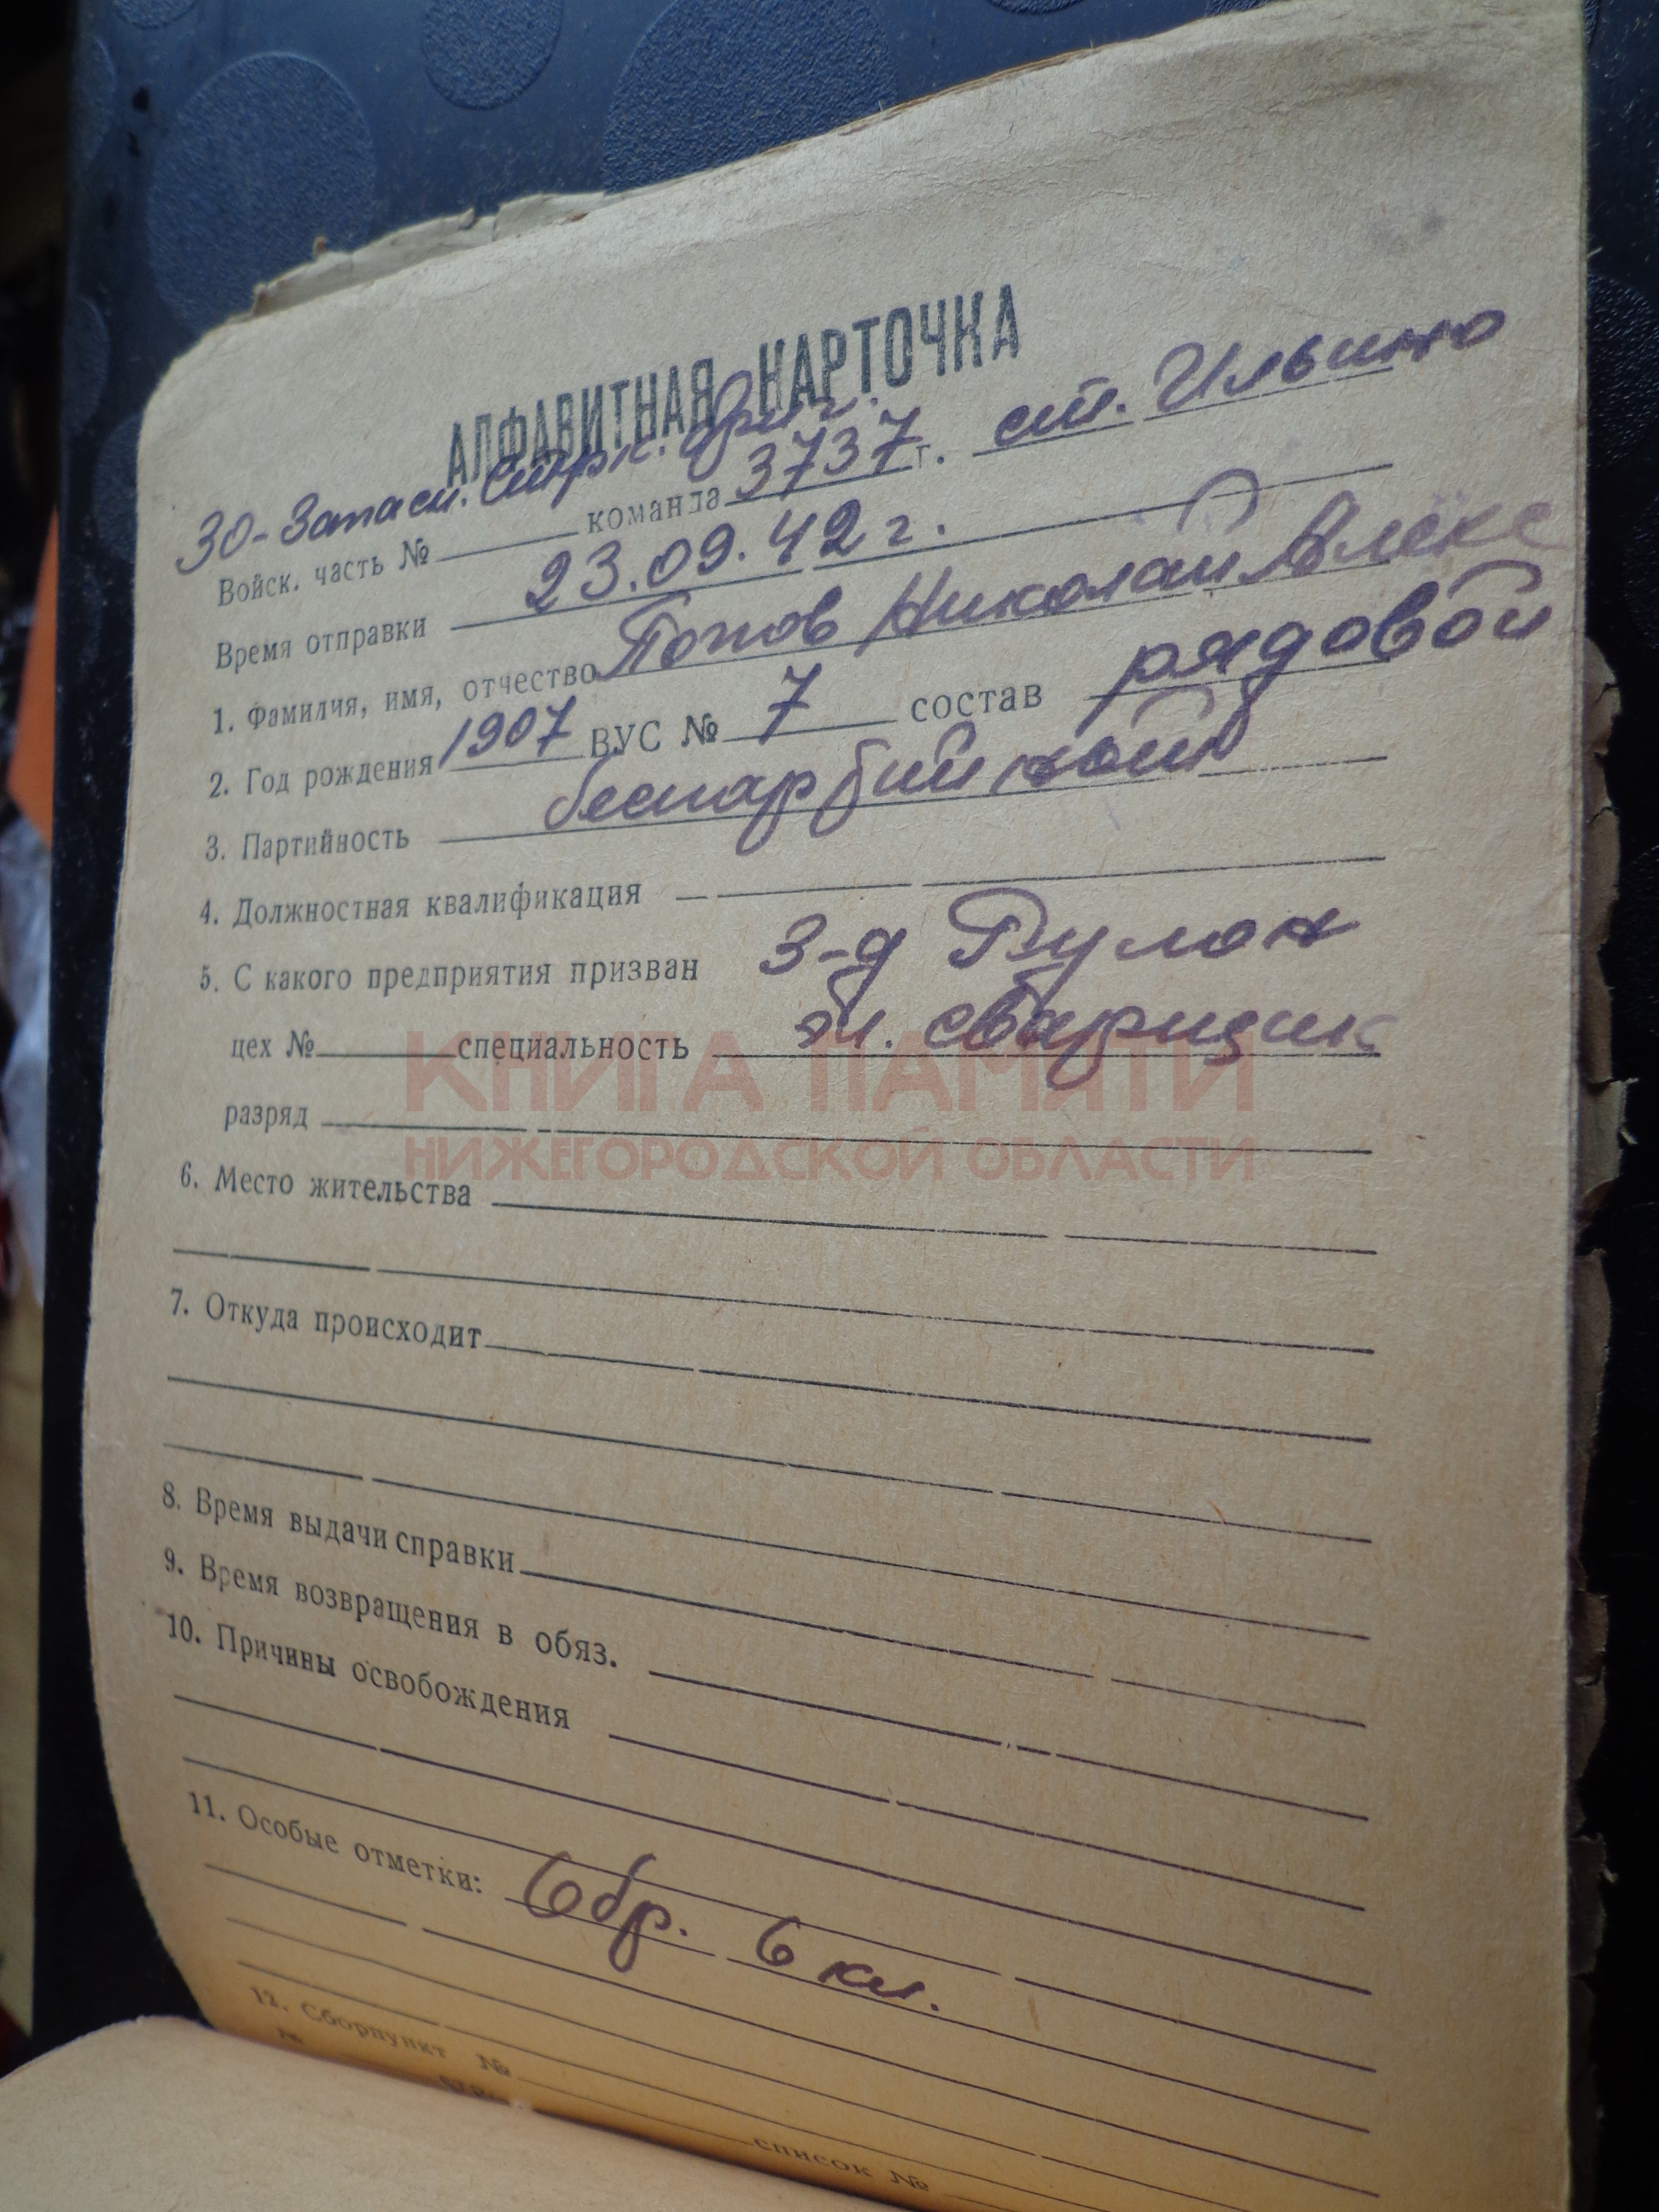 АЛФАВИТНАЯ КАРТОЧКА
30-Запасн. Стрк. бриг.
Войск. часть № команда 3737 г. ст. Ильино
Время отправки 23.09.42 г.
1. Фамилия, имя, отчество Попов Николай Алекс
2. Год рождения 1907 ВУС № 7 состав рядовой
3. Партийность беспартийный
4. Должностная квалификация
5. С какого предприятия призван 3-д
цех № специальность эл. сварщик
разряд
КНИГА ПАМЯТИ
НИЖЕГОРОДСКОЙ ОБЛАСТИ
6. Место жительства
7. Откуда происходит
8. Время выдачи справки
9. Время возвращения в обяз.
10. Причины освобождения
11. Особые отметки: Обр. 6 кл.
12. Сборпункт №
список №